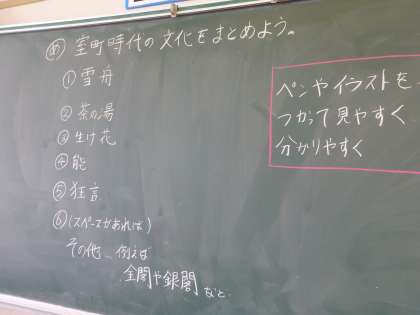 め 室町時代の文化をまとめよう。
① 雪舟
② 茶の湯
③ 生け花
④ 能
⑤ 狂言
⑥ (スペースがあれば)
その他、例えば
金閣や銀閣 など
ペンやイラストを
つかって見やすく
分かりやすく